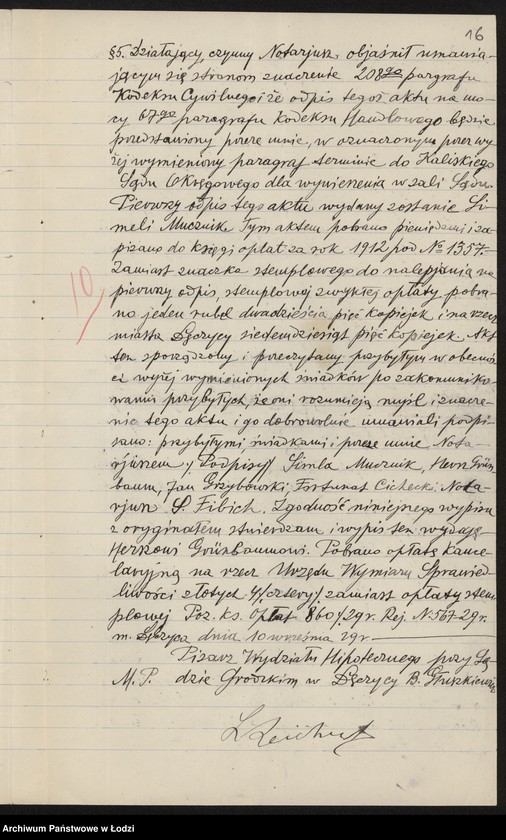 16
§5. Działający czynny Notarjusz objaśnił umawia-
jącym się stronom znaczenie 208go pargrafu
Kodeksu Cywilnego i że odpis tegoż aktu na mo-
cy 67go paragrafu kodeksu Handlowego będzie
przedstawiony przeze mnie, w oznaczonym przez wy
żej wymieniony paragraf terminie do Kaliskiego
Sądu Okręgowego dla wywieszenia w sali Sądu.
Pierwszy odpis tego aktu wydany zostanie Si
meli Mucznik. Tym aktem pobrano pieniędzmi i za-
pisano do księgi opłat za rok 1912 pod № 1357.
Zamiast znaczka stemplowego do nalepiania na
pierwszy odpis, stemplowej zwykłej opłaty pobra-
no jeden rubel dwadzieścia pięć kopiejek i na rzecz
miasta Łęczycy siedemdziesiąt pięć kopiejek. Akt
ten sporządzony i przeczytany przybyłym w obecnoś
ci wyżej wymienionych świadków po zakomuniko-
waniu przybyłych, że oni rozumieją myśl i znacze-
nie tego aktu i go dobrowolnie umawiali podpi-
sano: przybyłymi, świadkami i przeze mnie Nota-
rjuszem ./. Podpisy/ Simla Mucznik, Hersz Grün
baum, Jan Grzybowski, Fortunat Cichecki. Nota-
rjusz S. Fibich. Zgodność niniejszego wypisu
z oryginałem stwierdzam i wypis ten wydaję
Herszkowi Grünbaumowi. Pobrano opłatę kance-
laryjną na rzecz Urzędu Wymiaru Sprawied-
liwości złotych 4/cztery/ zamiast opłaty stem
plowej Poz. ks. Opłat 860/29 r. Rej. N. 567-29 r.
m. Łęczyca dnia 10 września 29 r.
Pisarz Wydziału Hipotecznego przy Są-
M. P. dzie Grodzkim w Łęczycy B.
10
Archiwum Państwowe w Łodzi